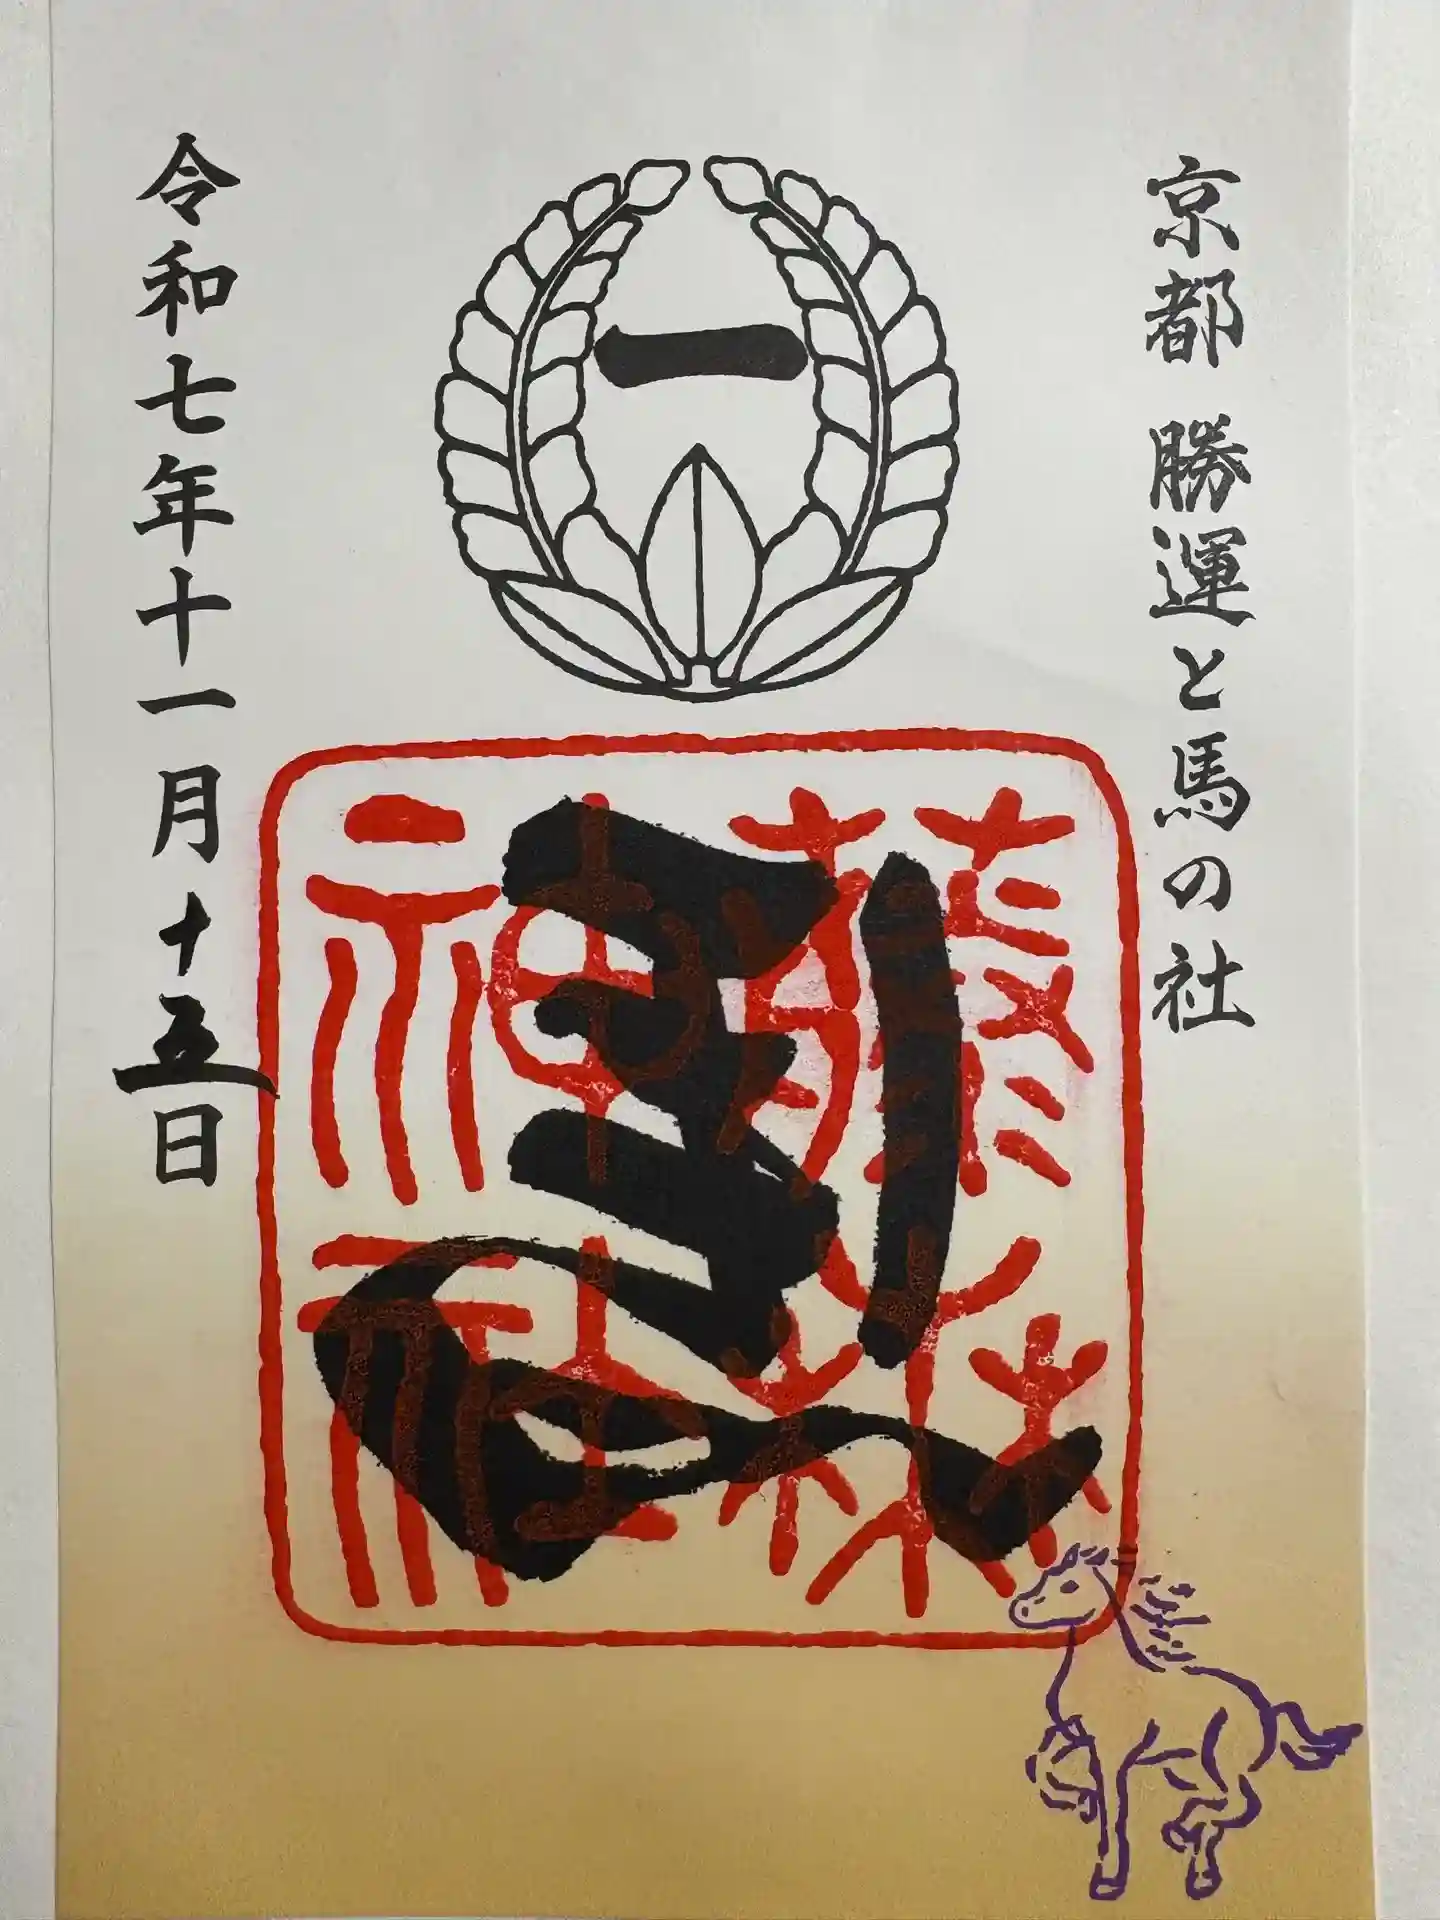 京都 勝運と馬の社
一
藤森
神社
令和七年十一月十五日